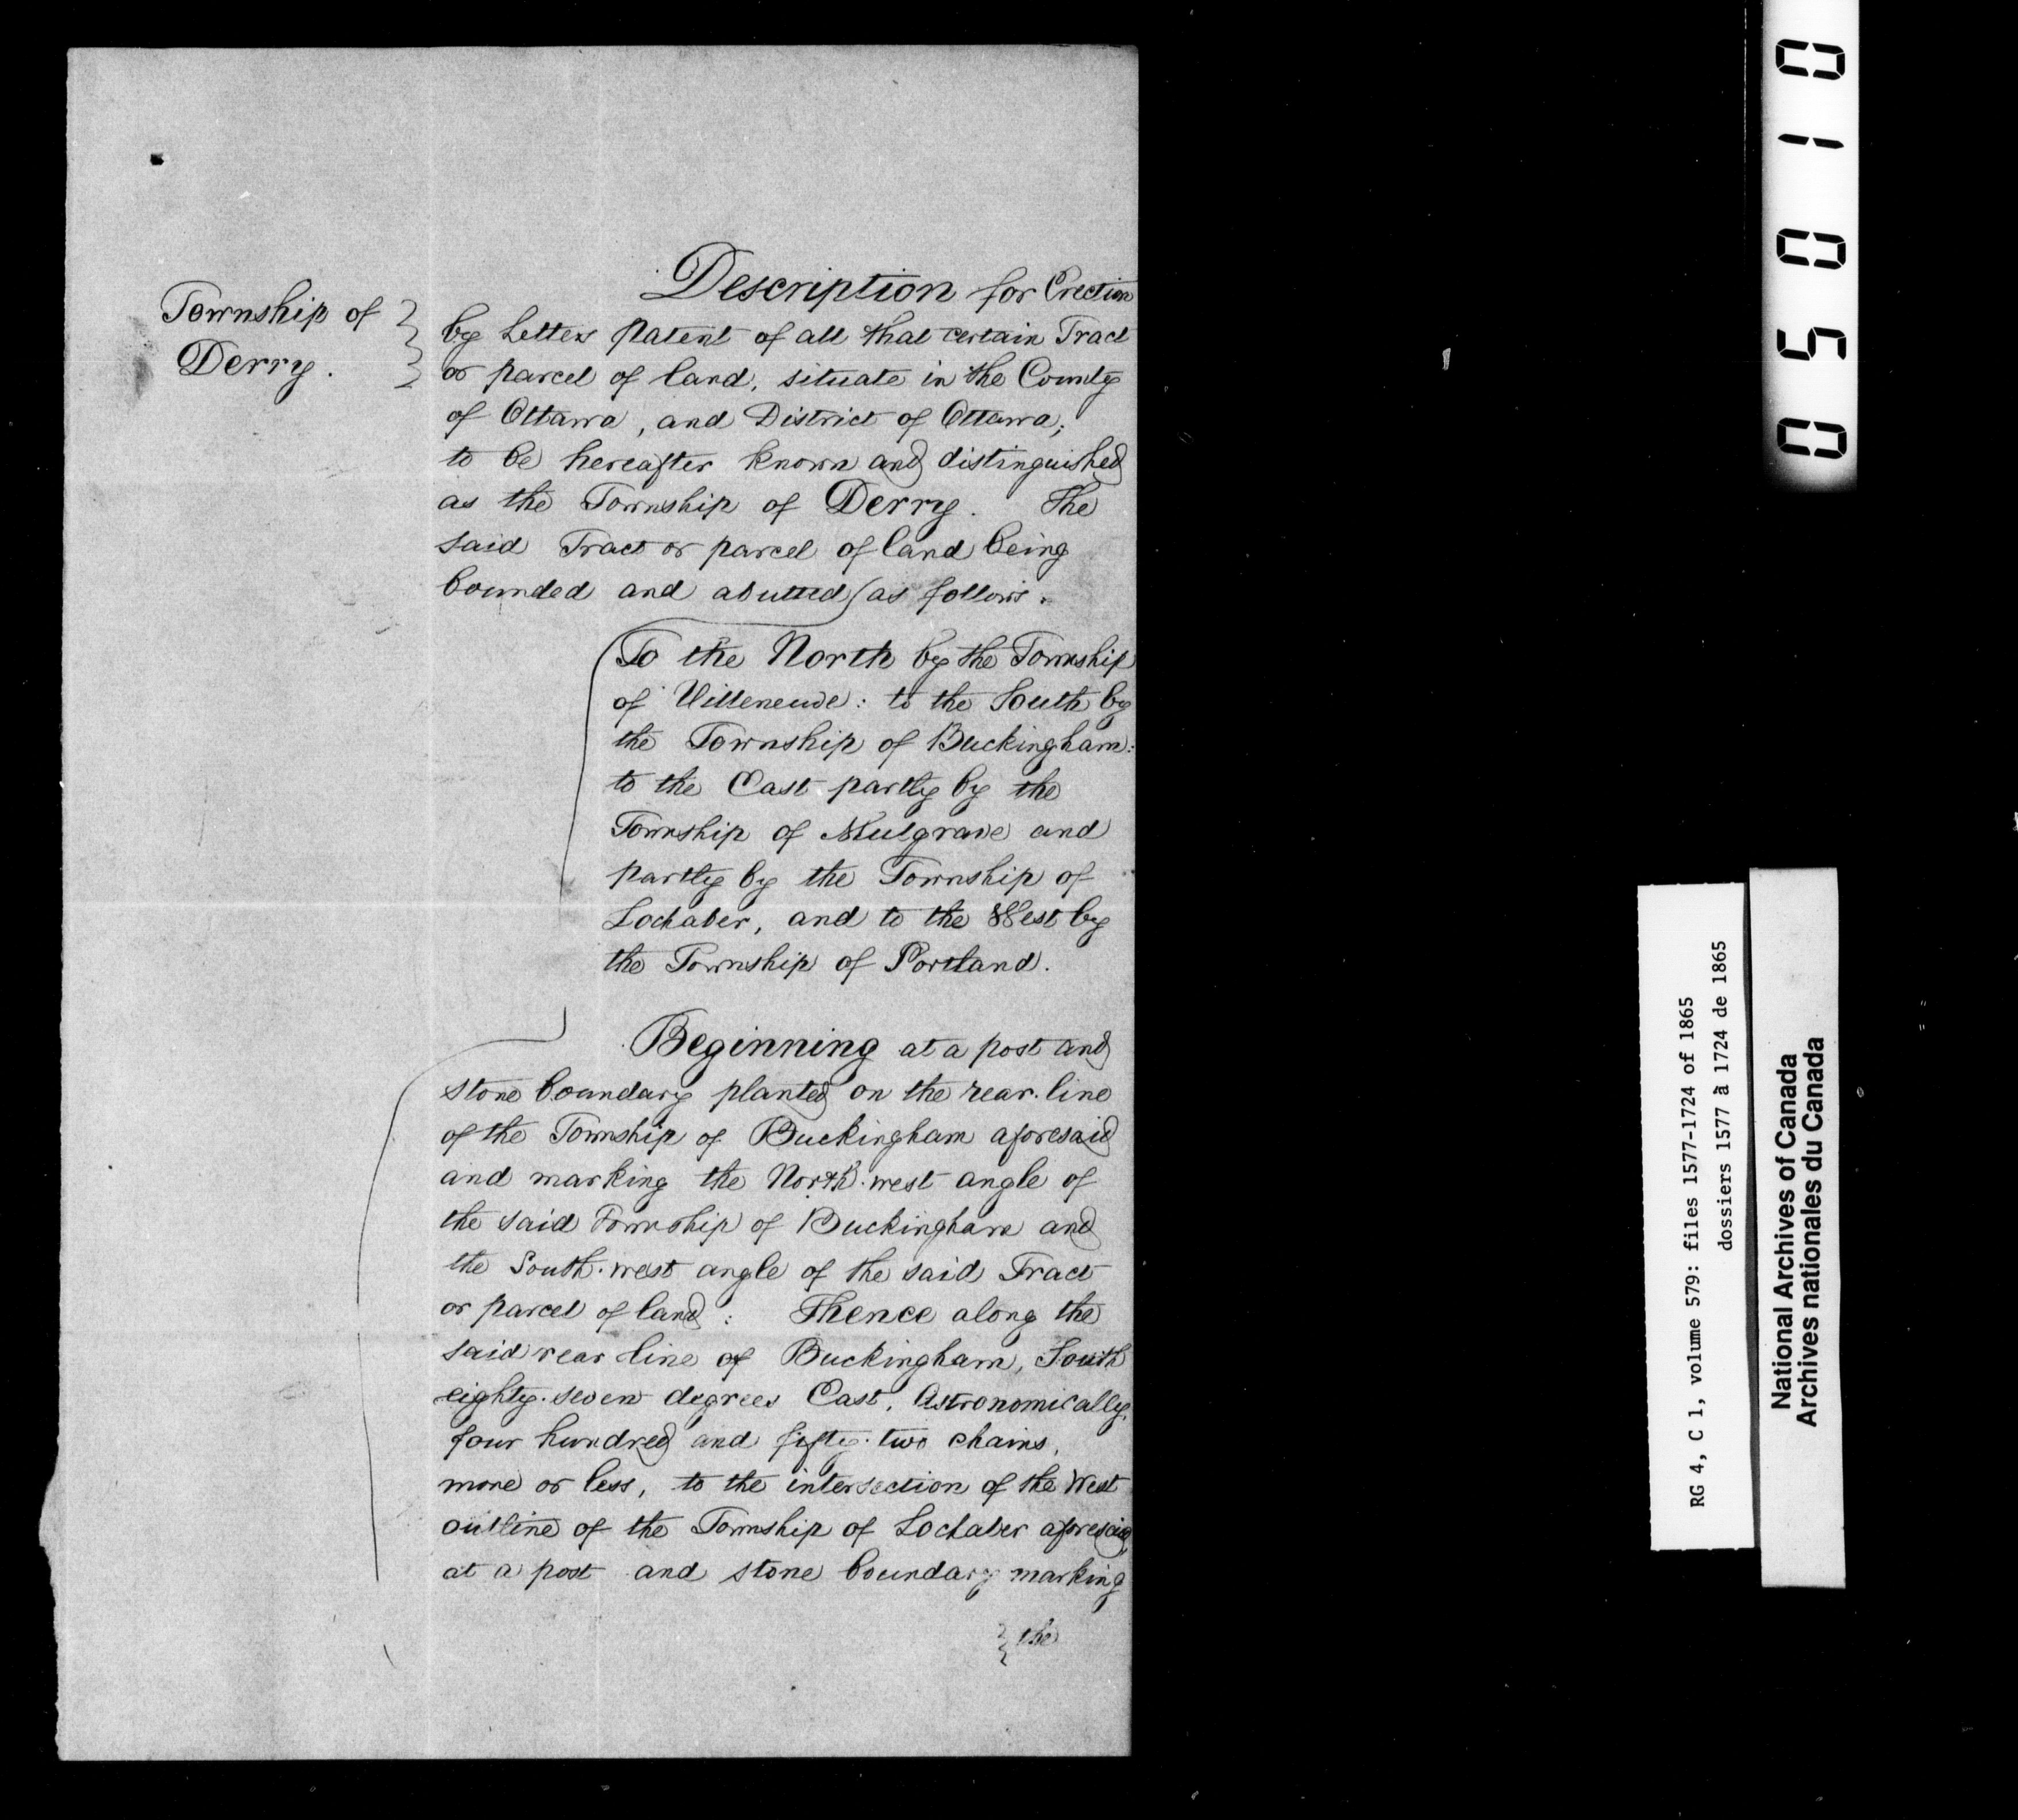 Township of
Derry.
Description for Erection
by Letters patent of all that certain Tract
or parcel of land, situate in the County
of Ottawa, and District of Ottawa;
to be hereafter known and distinguished
as the Township of Derry. The
said Tract or parcel of land being
bounded and abutted as follows.
To the North by the Township
of Villeneuve: to the South by
the Township of Buckingham:
to the East partly by the
Township of Mulgrave and
partly by the Township of
Lochaber, and to the West by
the Township of Portland.
Beginning at a post and
stone boundary planted on the rear line
of the Township of Buckingham aforesaid
and marking the North-west angle of
the said Township of Buckingham and
the South-west angle of the said Tract
or parcel of land: Thence along the
said rear line of Buckingham, South
eighty-seven degrees East, Astronomically,
four hundred and fifty-two chains,
more or less, to the intersection of the West
outline of the Township of Lochaber aforesaid,
at a post and stone boundary marking
the
05010
RG 4, C 1, volume 579: files 1577-1724 of 1865
dossiers 1577 à 1724 de 1865
National Archives of Canada
Archives nationales du Canada